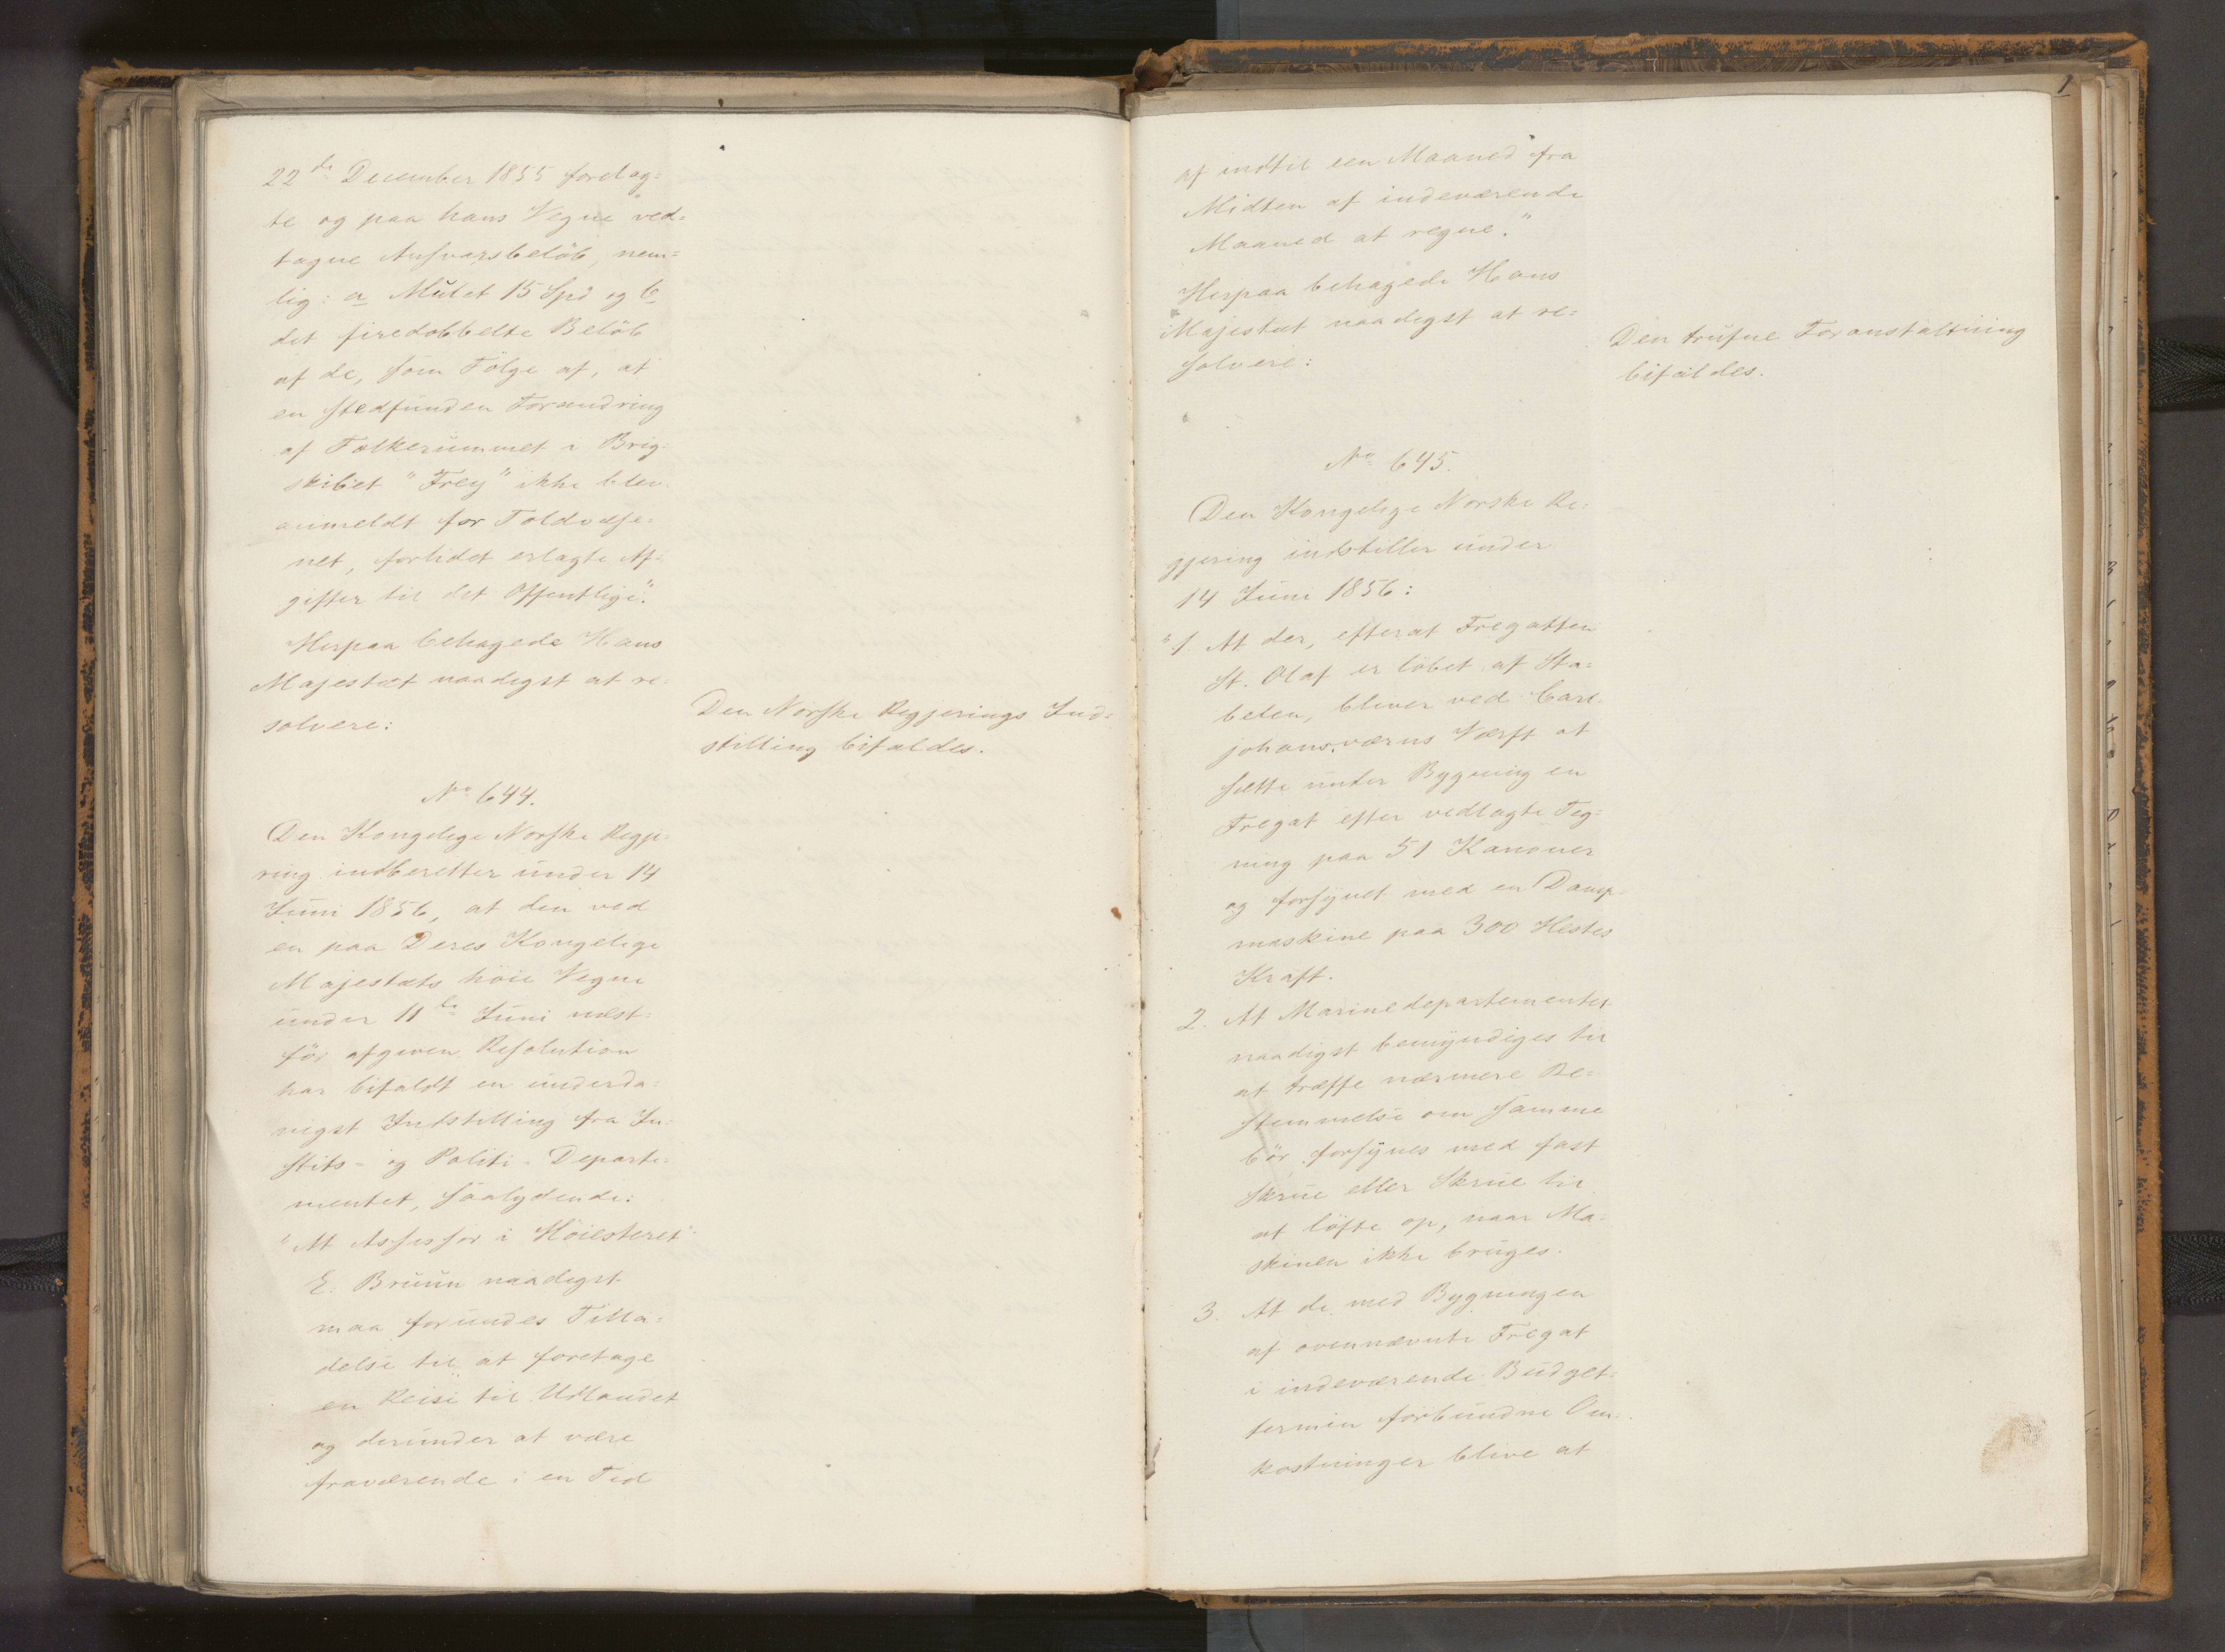 22de December 1855 foretag-
te og paa hans Vegne ved-
tagne Ansvarsbeløb, nem-
lig: a Mulct 15 Spd og b
det firedobbelte Beløb
af de, som Følge af, at
en stedfunden Forandring
af Folkerummet i Brig-
skibet "Frey" ikke blev
anmeldt for Toldvæse-
net, forlidet erlagte Af-
gifter til det Offentlige."
Herpaa behagede Hans
Majestæt naadigst at re-
solvere:
Den Norske Regjerings Ind-
stilling bifaldes.
No 644.
Den Kongelige Norske Regje-
ring indberetter under 14
Juni 1856, at den ved
en paa Deres Kongelige
Majestæts höie Vegne
under 11te Juni næst-
för afgiven Resolution
har bifaldt en underda-
nigst Indstilling fra Ju-
stits- og Politi-Departe-
mentet, saalydende:
"At Assessor i Höiesteret
E. Bruun naadigst
maa forundes Tilla-
delse til at foretage
en Reise til Udlandet
og derunder at være
fraværende i en Tid
1
af indtil een Maaned fra
Midten af indeværende
Maaned at regne."
Herpaa behagede Hans
Majestæt naadigst at re-
solvere:
Den trufne Foranstaltning
bifaldes.
No 645.
Den Kongelige Norske Re-
gjering indstiller under
14 Juni 1856:
"1. At der, efterat Fregatten
St. Olaf er löbet af Sta-
belen, bliver ved Carl-
johansværns Værft at
sætte under Bygning en
Fregat efter vedlagte Teg-
ning paa 51 Kanoner
og forsynet med en Damp-
maskine paa 300 Hestes
Kraft.
2. At Marinedepartementet
naadigst bemyndiges til
at træffe nærmere Be-
stemmelse om samme
bör forsynes med fast
Skrue eller Skrue til
at löfte op, naar Ma-
skinen ikke bruges.
3. At de med Bygningen
af ovennævnte Fregat
i indeværende Budget-
termin forbundne Om-
kostninger blive at